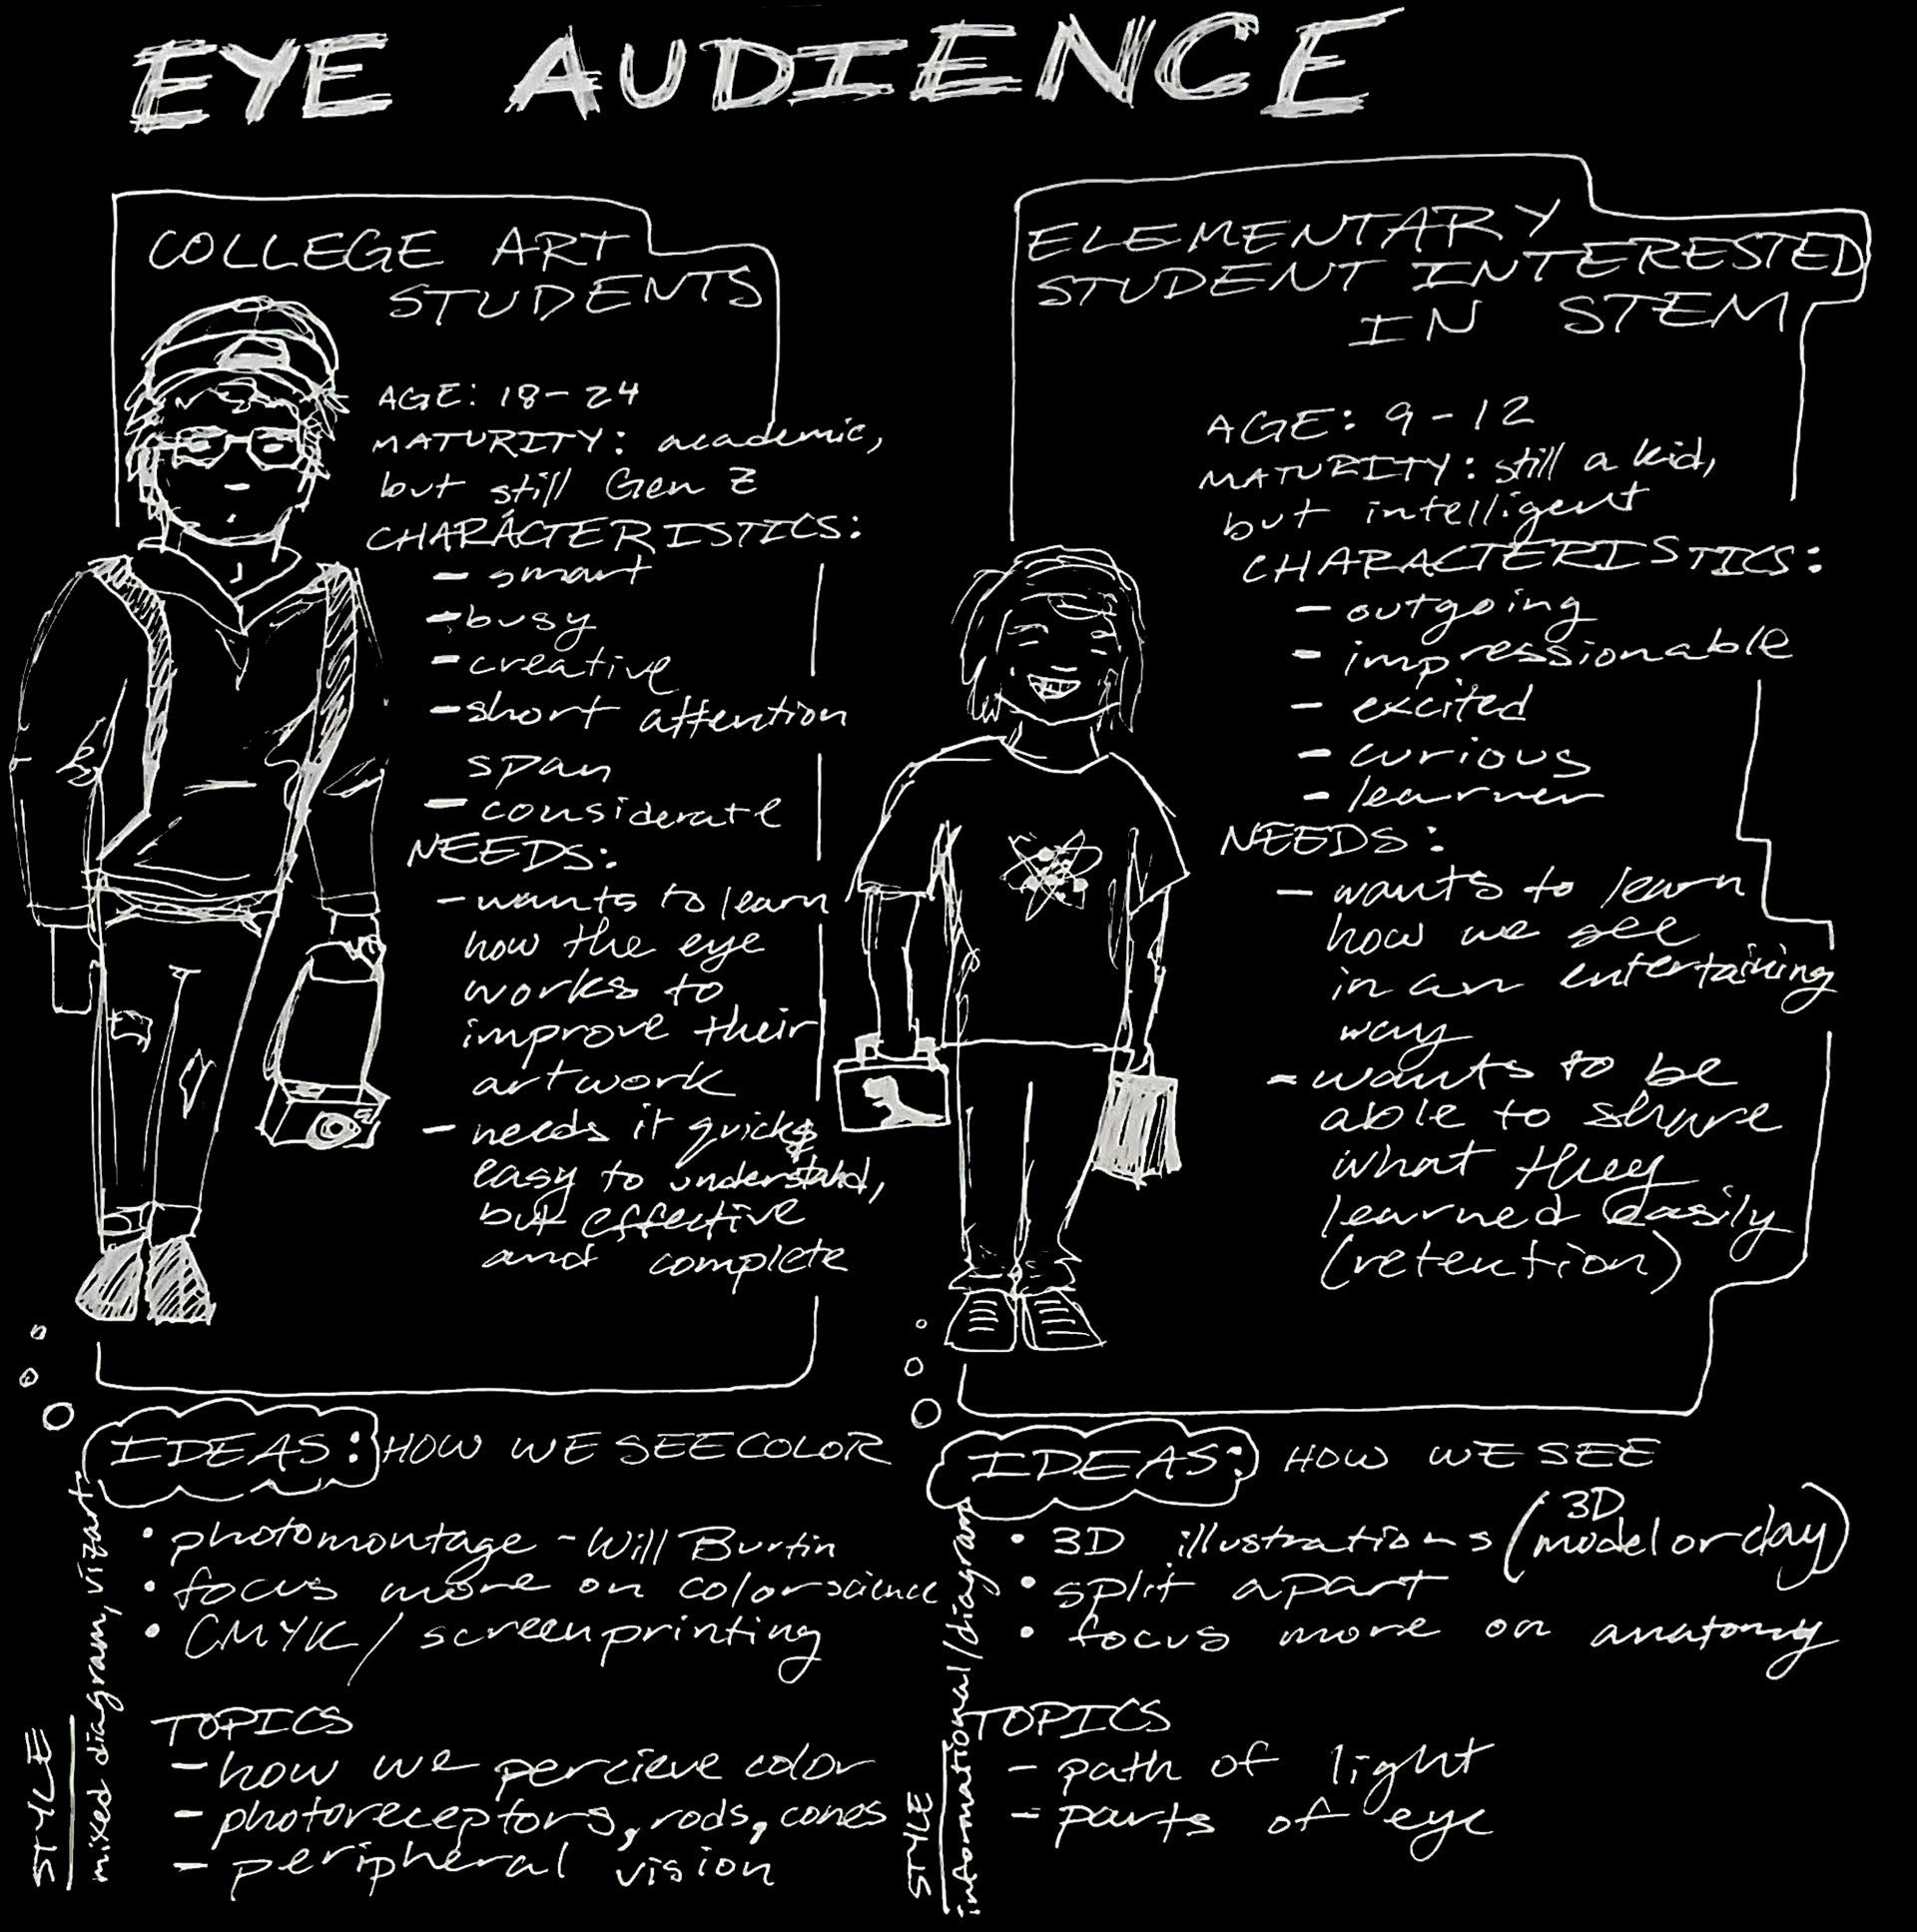 EYE AUDIENCE
COLLEGE ART
STUDENTS
AGE: 18-24
MATURITY: academic,
but still Gen Z
CHARACTERISTICS:
- smart
- busy
- creative
- short attention
span
- considerate
NEEDS:
- wants to learn
how the eye
works to
improve their
artwork
- needs it quick &
easy to understand,
but effective
and complete
IDEAS: HOW WE SEE COLOR
• photomontage - Will Burtin
• focus more on color science
• CMYK / screenprinting
TOPICS
- how we percieve color
- photoreceptors, rods, cones
- peripheral vision
STYLE
mixed diagram, vizart
ELEMENTARY
STUDENT INTERESTED
IN STEM
AGE: 9-12
MATURITY: still a kid,
but intelligent
CHARACTERISTICS:
- outgoing
- impressionable
- excited
- curious
- learner
NEEDS:
- wants to learn
how we see
in an entertaining
way
- wants to be
able to share
what they
learned easily
(retention)
IDEAS: HOW WE SEE
• 3D illustrations (3D model or clay)
• split apart
• focus more on anatomy
TOPICS
- path of light
- parts of eye
STYLE
informational/diagram